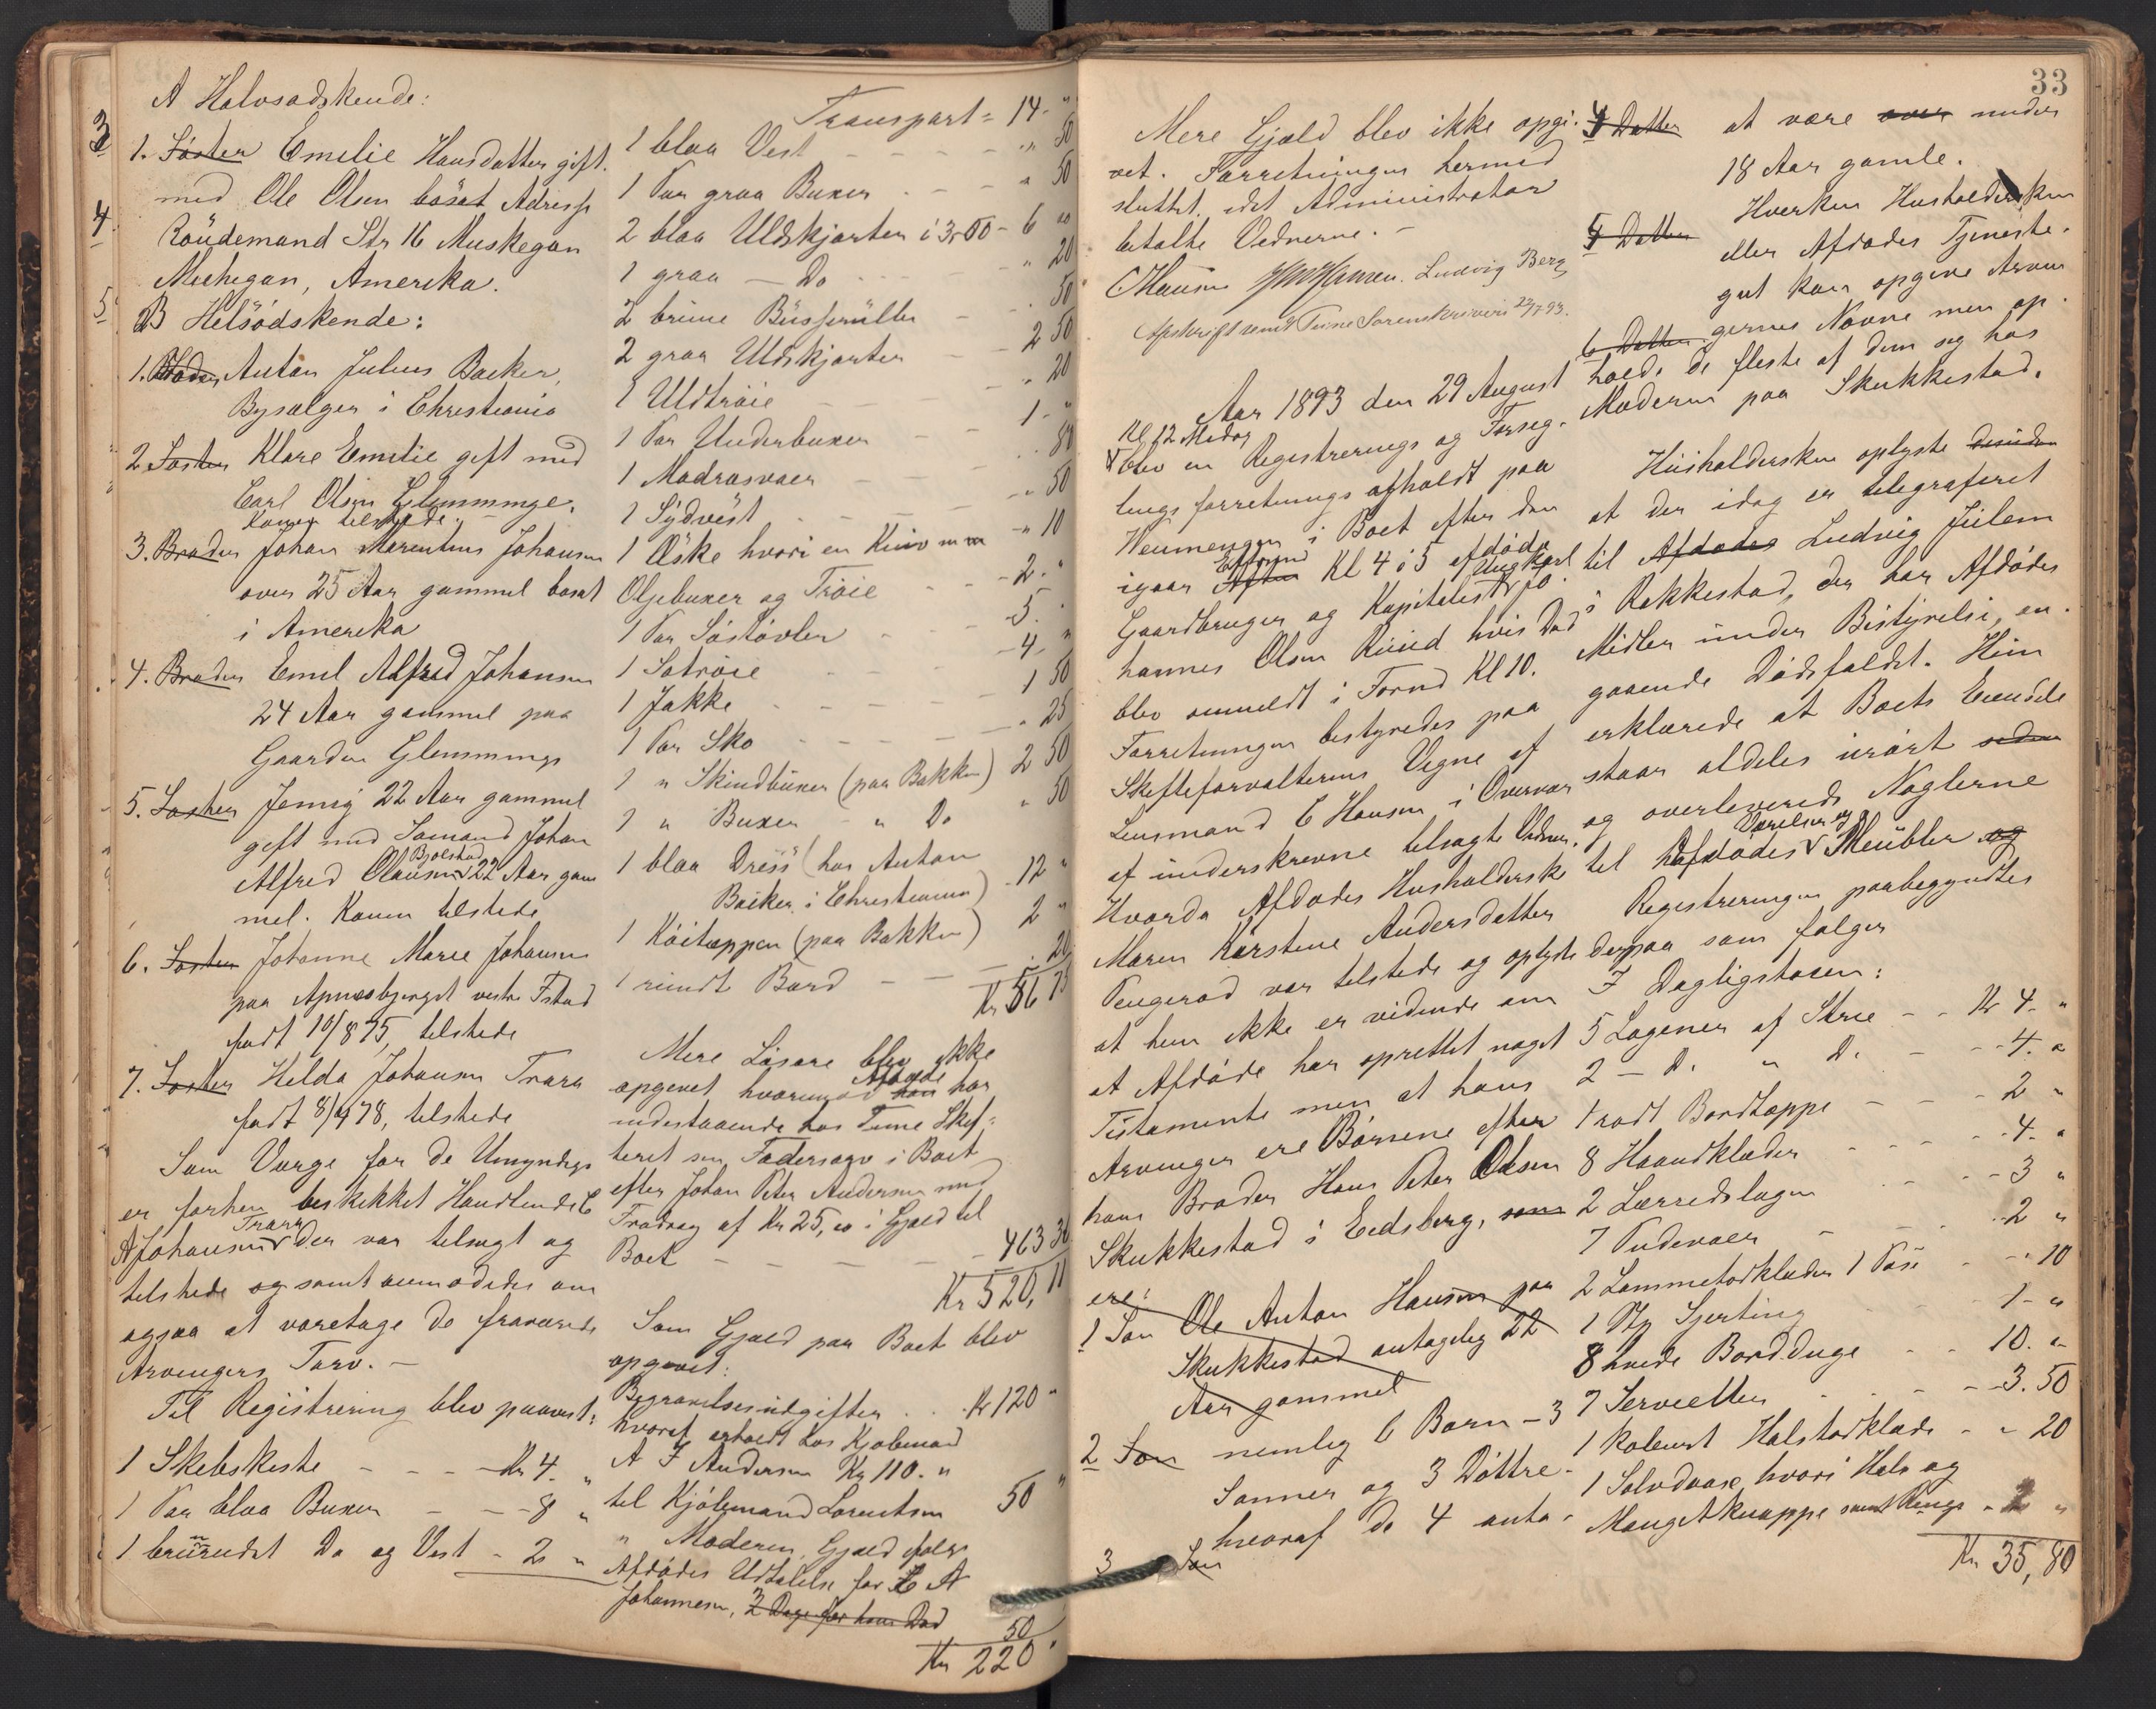 A Halvsødskende:
3
1. Søster Emilie Hansdatter gift
med Ole Olsen bosat Adresse
4
Roüdemand Str 16 Muskegan
Michegan, Amerika.
5
B Helsødskende:
1. Broder Anton Julius Backer,
Bysælger i Christiania
2. Søster Klare Emilie gift med
Carl Olsen Glemminge.
Konen tilstede.
3. Broder Johan Marentius Johansen
over 25 Aar gammel bosat
i Amerika
4. Broder Emil Alfred Johansen
24 Aar gammel paa
Gaarden Glemminge
5. Søster Jenny 22 Aar gammel
gift med Sømand Johan
Alfred Olausen Bjølstad 22 Aar gam
mel. Konen tilstede
6. Søster Johanne Marie Johansen
paa Apnæsbjerget vestre Fstad
født 10/8 75, tilstede
7. Søster Hilda Johansen Trara
født 8/4 78, tilstede
Som Værge for de Umyndige
er forhen beskikket Handlende C
A Johansen Trara der var tilsagt og
tilstede og samt anmodedes om
ogsaa at varetage de fraværende
Arvingers Tarv. –
Til Registrering blev paavist:
1 Skibskiste – – – Kr 4. "
1 Par blaa Buxer – – – 8 "
1 bruundt Do og Vest – 2 "
Transport = 14 - "
1 blaa Vest – – – – " 50
1 Par graa Buxer – – " 50
2 blaa Uldskjorter i 3,00 – 6 "
1 graa – Do – – " 20
2 brune Büsseruller – " 50
2 graa Uldskjorter – 2 50
1 Uldtrøie – – – " 20
1 Par Underbuxer – – 1 - "
1 Madrasvaer – – " 80
1 Sydvest – – – " 50
1 Æske hvori en Kniv m m – " 10
Oljebuxer og Trøie – – 2. "
1 Par Søstøvler – – 5 "
1 Søtrøie – – 4 "
1 Jakke – – – 1 50
1 Par Sko – – – " 25
1 " Skindbuxer (paa Bakken) 2 50
1 " Buxer – " Do " 50
1 blaa Dress (hos Anton
Backer i Christiania) – 12 "
1 Køitæppen (paa Bakken) 2 "
1 rundt Bord – – – " 20
Kr 56 75
Mere Løsøre blev ikke
opgivet hvorimod han Afdøde har
indestaaende hos Tune Skif-
teret sin Fadersarv i Boet
efter Johan Peter Andersen med
Fradrag af Kr 25,00 i Gjæld til
Boet – – – – – 463 36
Kr 520, 11
Som Gjæld paa Boet blev
opgivet:
Begravelsesudgifter . . Kr 120 "
hvoraf erholdt hos Kjøbmand
A I Andersen Kr 110. "
til Kjøbmand Lorentsen 50 "
" Moderen, Gjæld ifølge
Afdødes Udtalelse for C A
Johannesen, 2 Dage før hans Død 50
Kr 220 "
33
Mere Gjæld blev ikke opgi-
vet. Forretningen hermed
sluttet, idet Administrator
betalte Vidnerne. –
C Hansen Ludvig Berg
Afskrift sendt Tune Sorenskriveri 29/7 93.
Aar 1893 den 29 August
Kl 12 Middag
blev en Registrerings og Forseg-
lings forretnings afholdt paa
Hennengen i Boet efter den
igaar Aften Efterm Kl 4 á 5 afdøde
Gaardbruger og Kapitalist Ungkarl Jo
hannes Olsen Ruud hvis Død
blev anmeldt i Formd Kl 10.
Forretningen bestyredes paa
Skifteforvalterens Vegne af
Lensmand C Hansen i Overvær
af underskrevne tilsagte Vidner.
Hvorda Afdødes Husholderske
Maren Kirstine Andersdatter
Pengerød var tilstede og oplyste
at hun ikke er vidende om
at Afdøde har oprettet noget
Testamente men at hans
Arvinger ere Børnene efter
hans Broder Hans Peter Olsen
Skukkestad i Eidsberg, som
ere:
1 Søn Ole Anton Hansen paa
Skukkestad antagelig 22
Aar gammel
2 Søn nemlig 6 Børn – 3
Sønner og 3 Døttre –
hvoraf de 4 anta-
3 Søn
4 Datter at være over under
18 Aar gamle.
Hverken Husholdersken
5 Datter eller Afdødes Tjeneste-
gut kan opgive Arvin
6 Datter gernes Navne men op-
holde de fleste af dem sig hos
Moderen paa Skukkestad.
Husholdersken oplyste desuden
at der idag er telegraferet
til Afdødes Ludvig Julsen
i Rakkestad, der har Afdødes
Midler under Bestyrelse, an-
gaaende Dødsfaldet. Hun
erklærede at Boets Eiendele
staar aldeles urørt siden
og overleverede Nøglerne
til Afdødes Værelser og Meubler og
Registreringen paabegyndtes
derpaa som følger
I Dagligstuen:
5 Lagener af Strie – – Kr 4. "
2 – D. " D. – – – 4. "
1 rødt Bordtæppe – – – 2 "
8 Haandklæder – – – 4. "
2 Lærredslagen – – – 3 "
7 Pudevaer – – – 2 "
2 Lommetørklæder 1 Pose – " 10
1 Stk Sjerting – – 1 - "
8 hvide Bordduge – – 10. "
7 Servietter – – – 3. 50
1 kulørt Halstørklæde – " 20
1 Sølvdaase hvori Hals og
Mangetknappe samt Penge – 2 "
Kr 35, 80